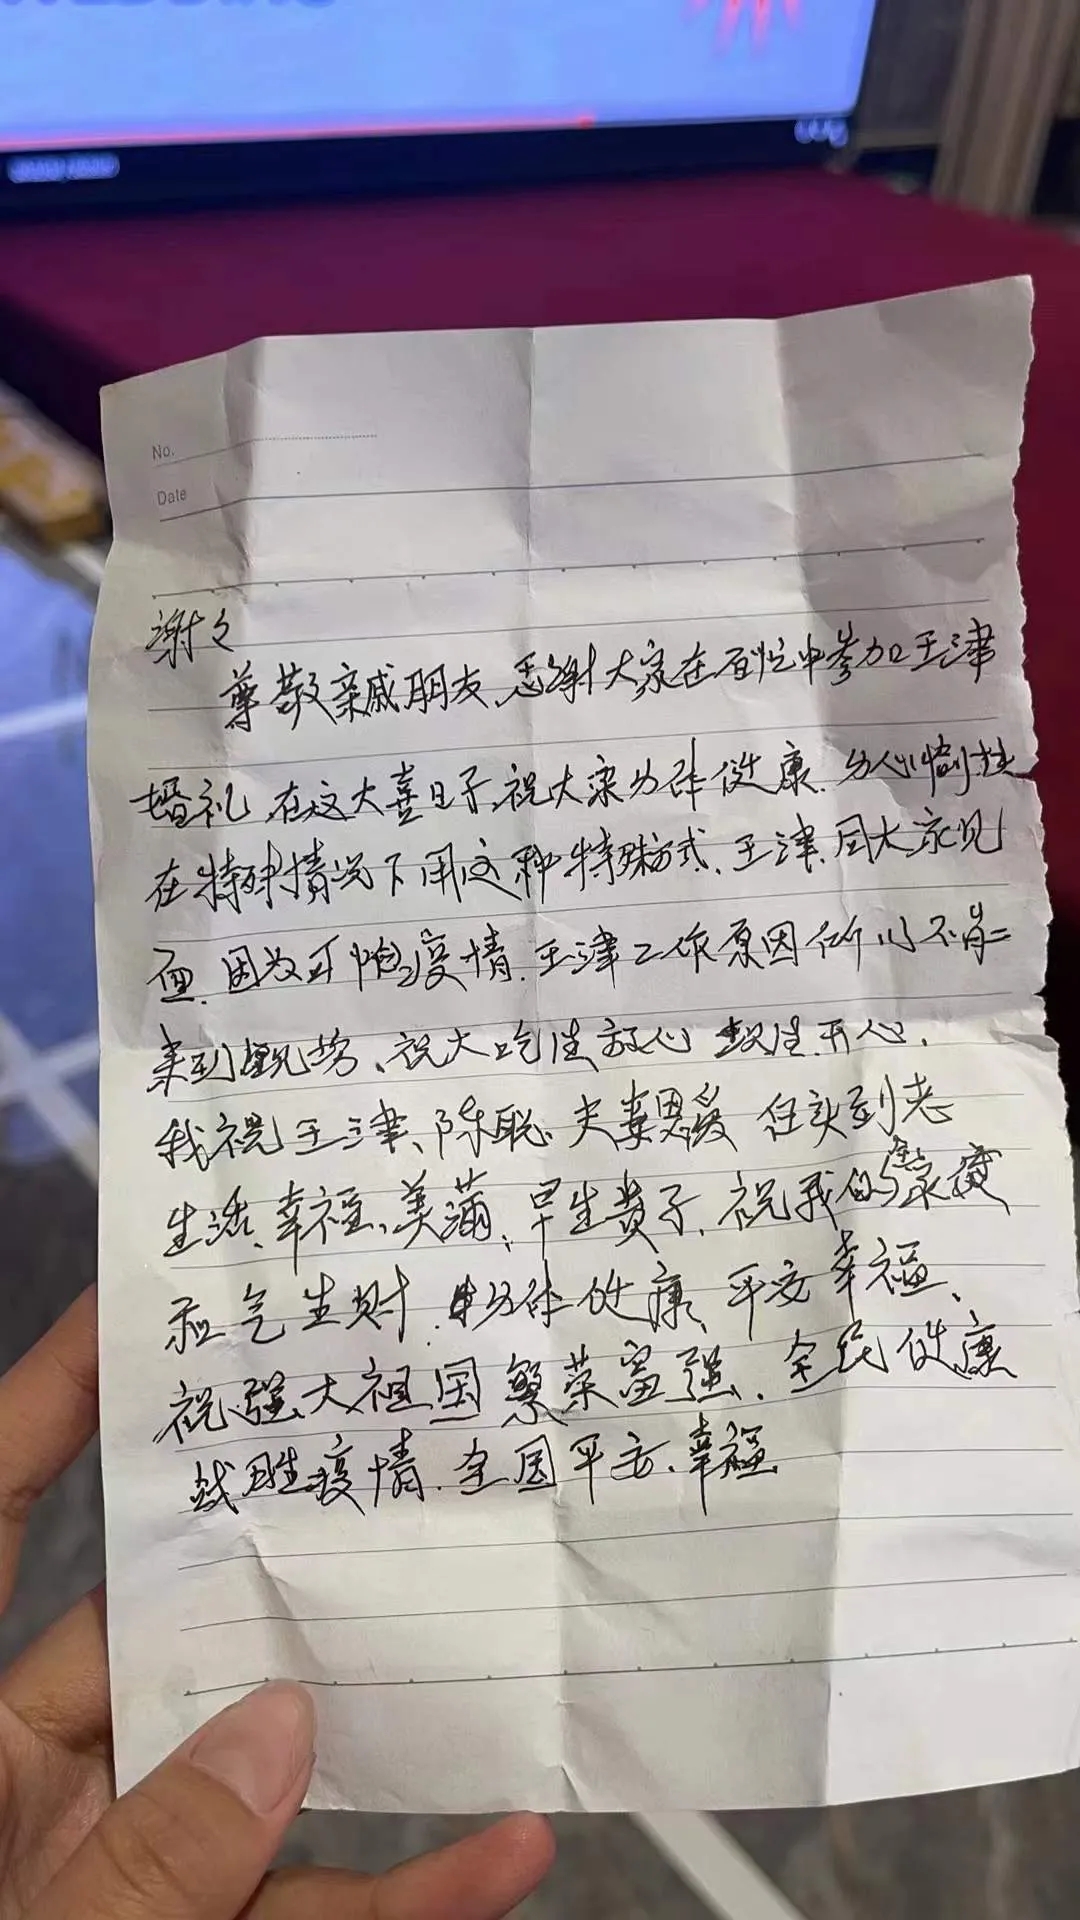 No.
Date
谢々
尊敬亲戚朋友、感谢大家在百忙中参加王津
婚礼、在这大喜日子、祝大家身体健康、身心愉快
在特殊情况下用这种特殊方式、王津、同大家见
面、因为可怕疫情、王津工作原因所以不能
来到现场、祝大吃住放心 开心、
我祝王津、陈聪、夫妻恩爱 白头到老
生活、幸福、美满、早生贵子、祝我的亲家
和气生财、身体健康、平安幸福、
祝强大祖国繁荣富强、全民健康
战胜疫情、全国平安、幸福